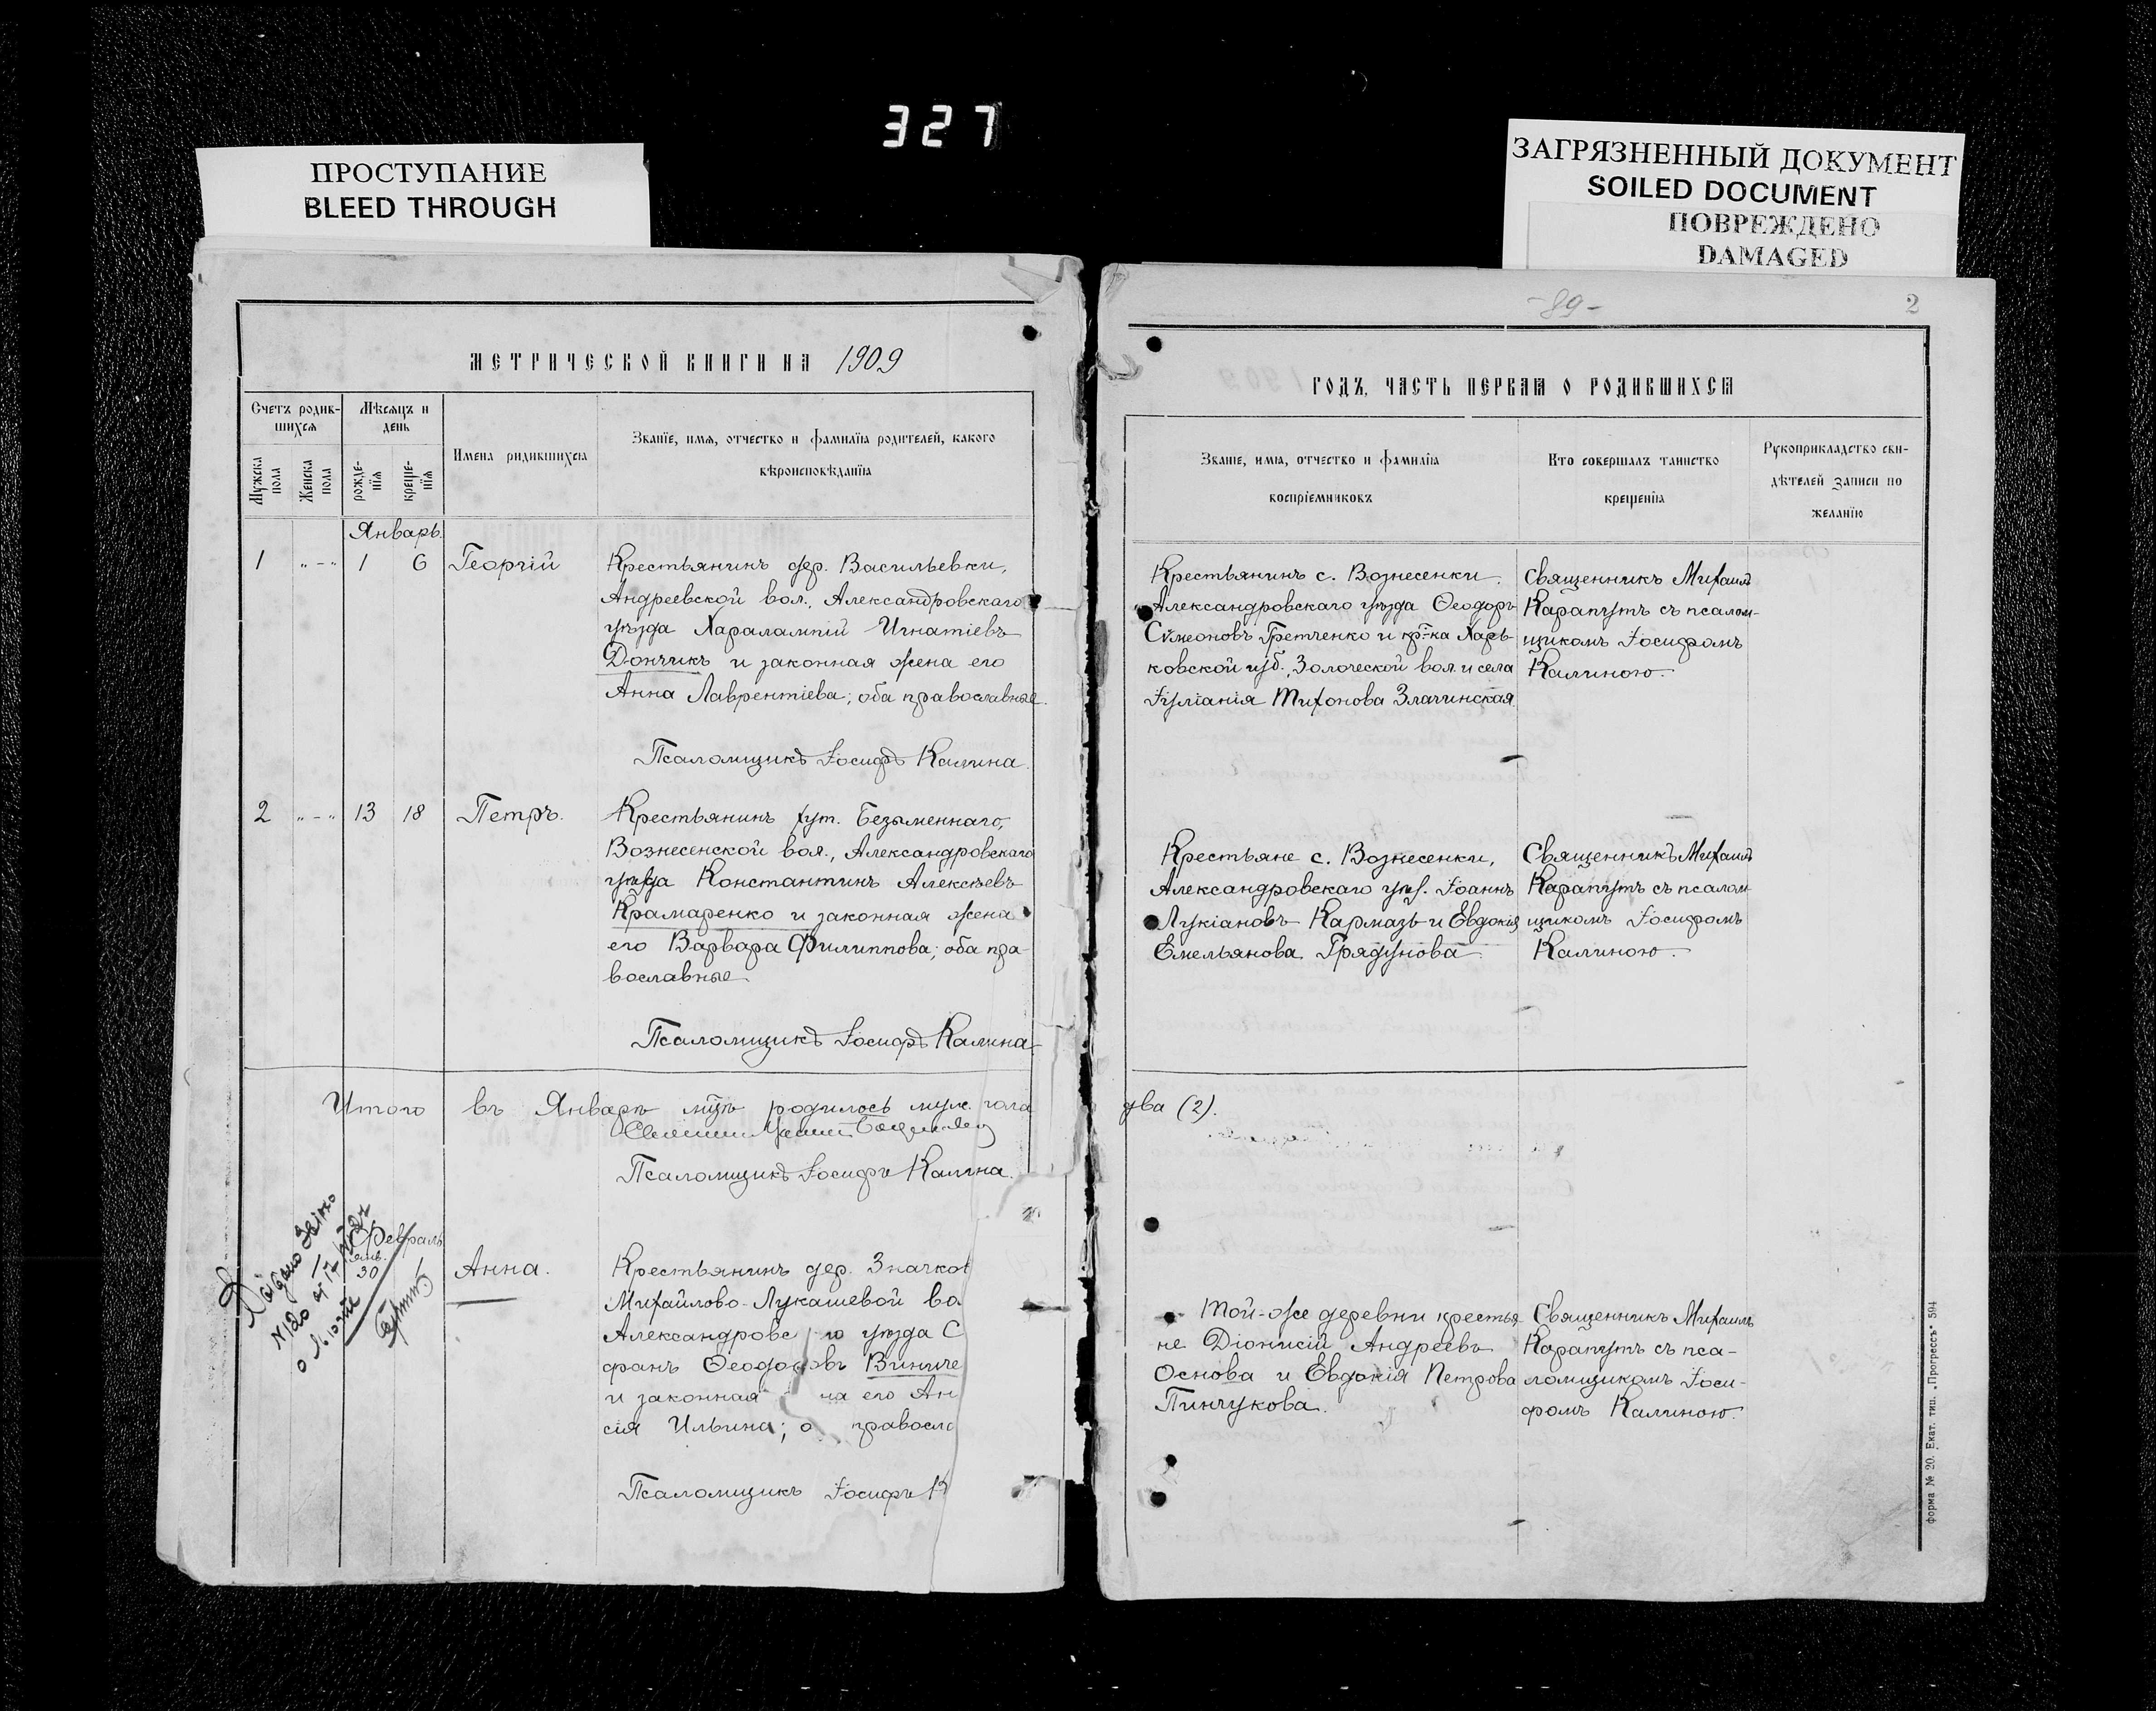 327
ПРОСТУПАНИЕ
BLEED THROUGH
ЗАГРЯЗНЕННЫЙ ДОКУМЕНТ
SOILED DOCUMENT
ПОВРЕЖДЕНО
DAMAGED
МЕТРИЧЕСКОЙ КНИГИ НА 1909
Счетъ родив-
шихся
Мѣсяцъ и
день
Мужска
пола
Женска
пола
рожде-
нія
креще-
нія
Имена родившихся
Званіе, имя, отчество и фамилія родителей, какого
вѣроисповѣданія
Январь.
1 " - " 1 6 Георгій
Крестьянинъ дер. Васильевки,
Андреевской вол., Александровскаго
уѣзда Харалампій Игнатіевъ
Дончикъ и законная жена его
Анна Лаврентіева; оба православные.
Псаломщикъ Іосифъ Калина.
2 " - " 13 18 Петръ.
Крестьянинъ хут. Безыменнаго,
Вознесенской вол., Александровскаго
уѣзда Константинъ Алексѣевъ
Крамаренко и законная жена
его Варвара Филиппова; оба пра-
вославные.
Псаломщикъ Іосифъ Калина.
Итого въ Январѣ мцѣ родилось муж. пола
Псаломщикъ Іосифъ Калина.
Февраль
янв.
30 1 Анна.
Крестьянинъ дер. Значков
Михайлово-Лукашевой во
Александровс го уѣзда С
фанъ Ѳеодо овъ Виниче
и законная на его Ан
сія Ильина; о правосла
Псаломщикъ Іосифъ К
- 89 -
2
ГОДЪ, ЧАСТЬ ПЕРВАЯ О РОДИВШИХСЯ
Званіе, имя, отчество и фамилія
воспріемниковъ
Кто совершалъ таинство
крещенія
Рукоприкладство сви-
дѣтелей записи по
желанію
Крестьянинъ с. Вознесенки,
Александровскаго уѣзда Ѳеодоръ
Сѵмеоновъ Гретченко и кр-ка Харь-
ковской губ., Золочевской вол. и села
Іуліанія Тихонова Злачинская.
Священникъ Михаилъ
Карапутъ съ псалом-
щикомъ Іосифомъ
Калиною.
Крестьяне с. Вознесенки,
Александровскаго уѣз. Іоаннъ
Лукіановъ Кармазь и Евдокія
Емельянова Грядунова.
Священникъ Михаилъ
Карапутъ съ псалом-
щикомъ Іосифомъ
Калиною.
два (2).
Той-же деревни крестья-
не Діонисій Андреевъ
Основа и Евдокія Петрова
Пинчукова.
Священникъ Михаилъ
Карапутъ съ пса-
ломщикомъ Іоси-
фомъ Калиною.
Форма № 20. Екат. тип. „Прогрессъ" 594